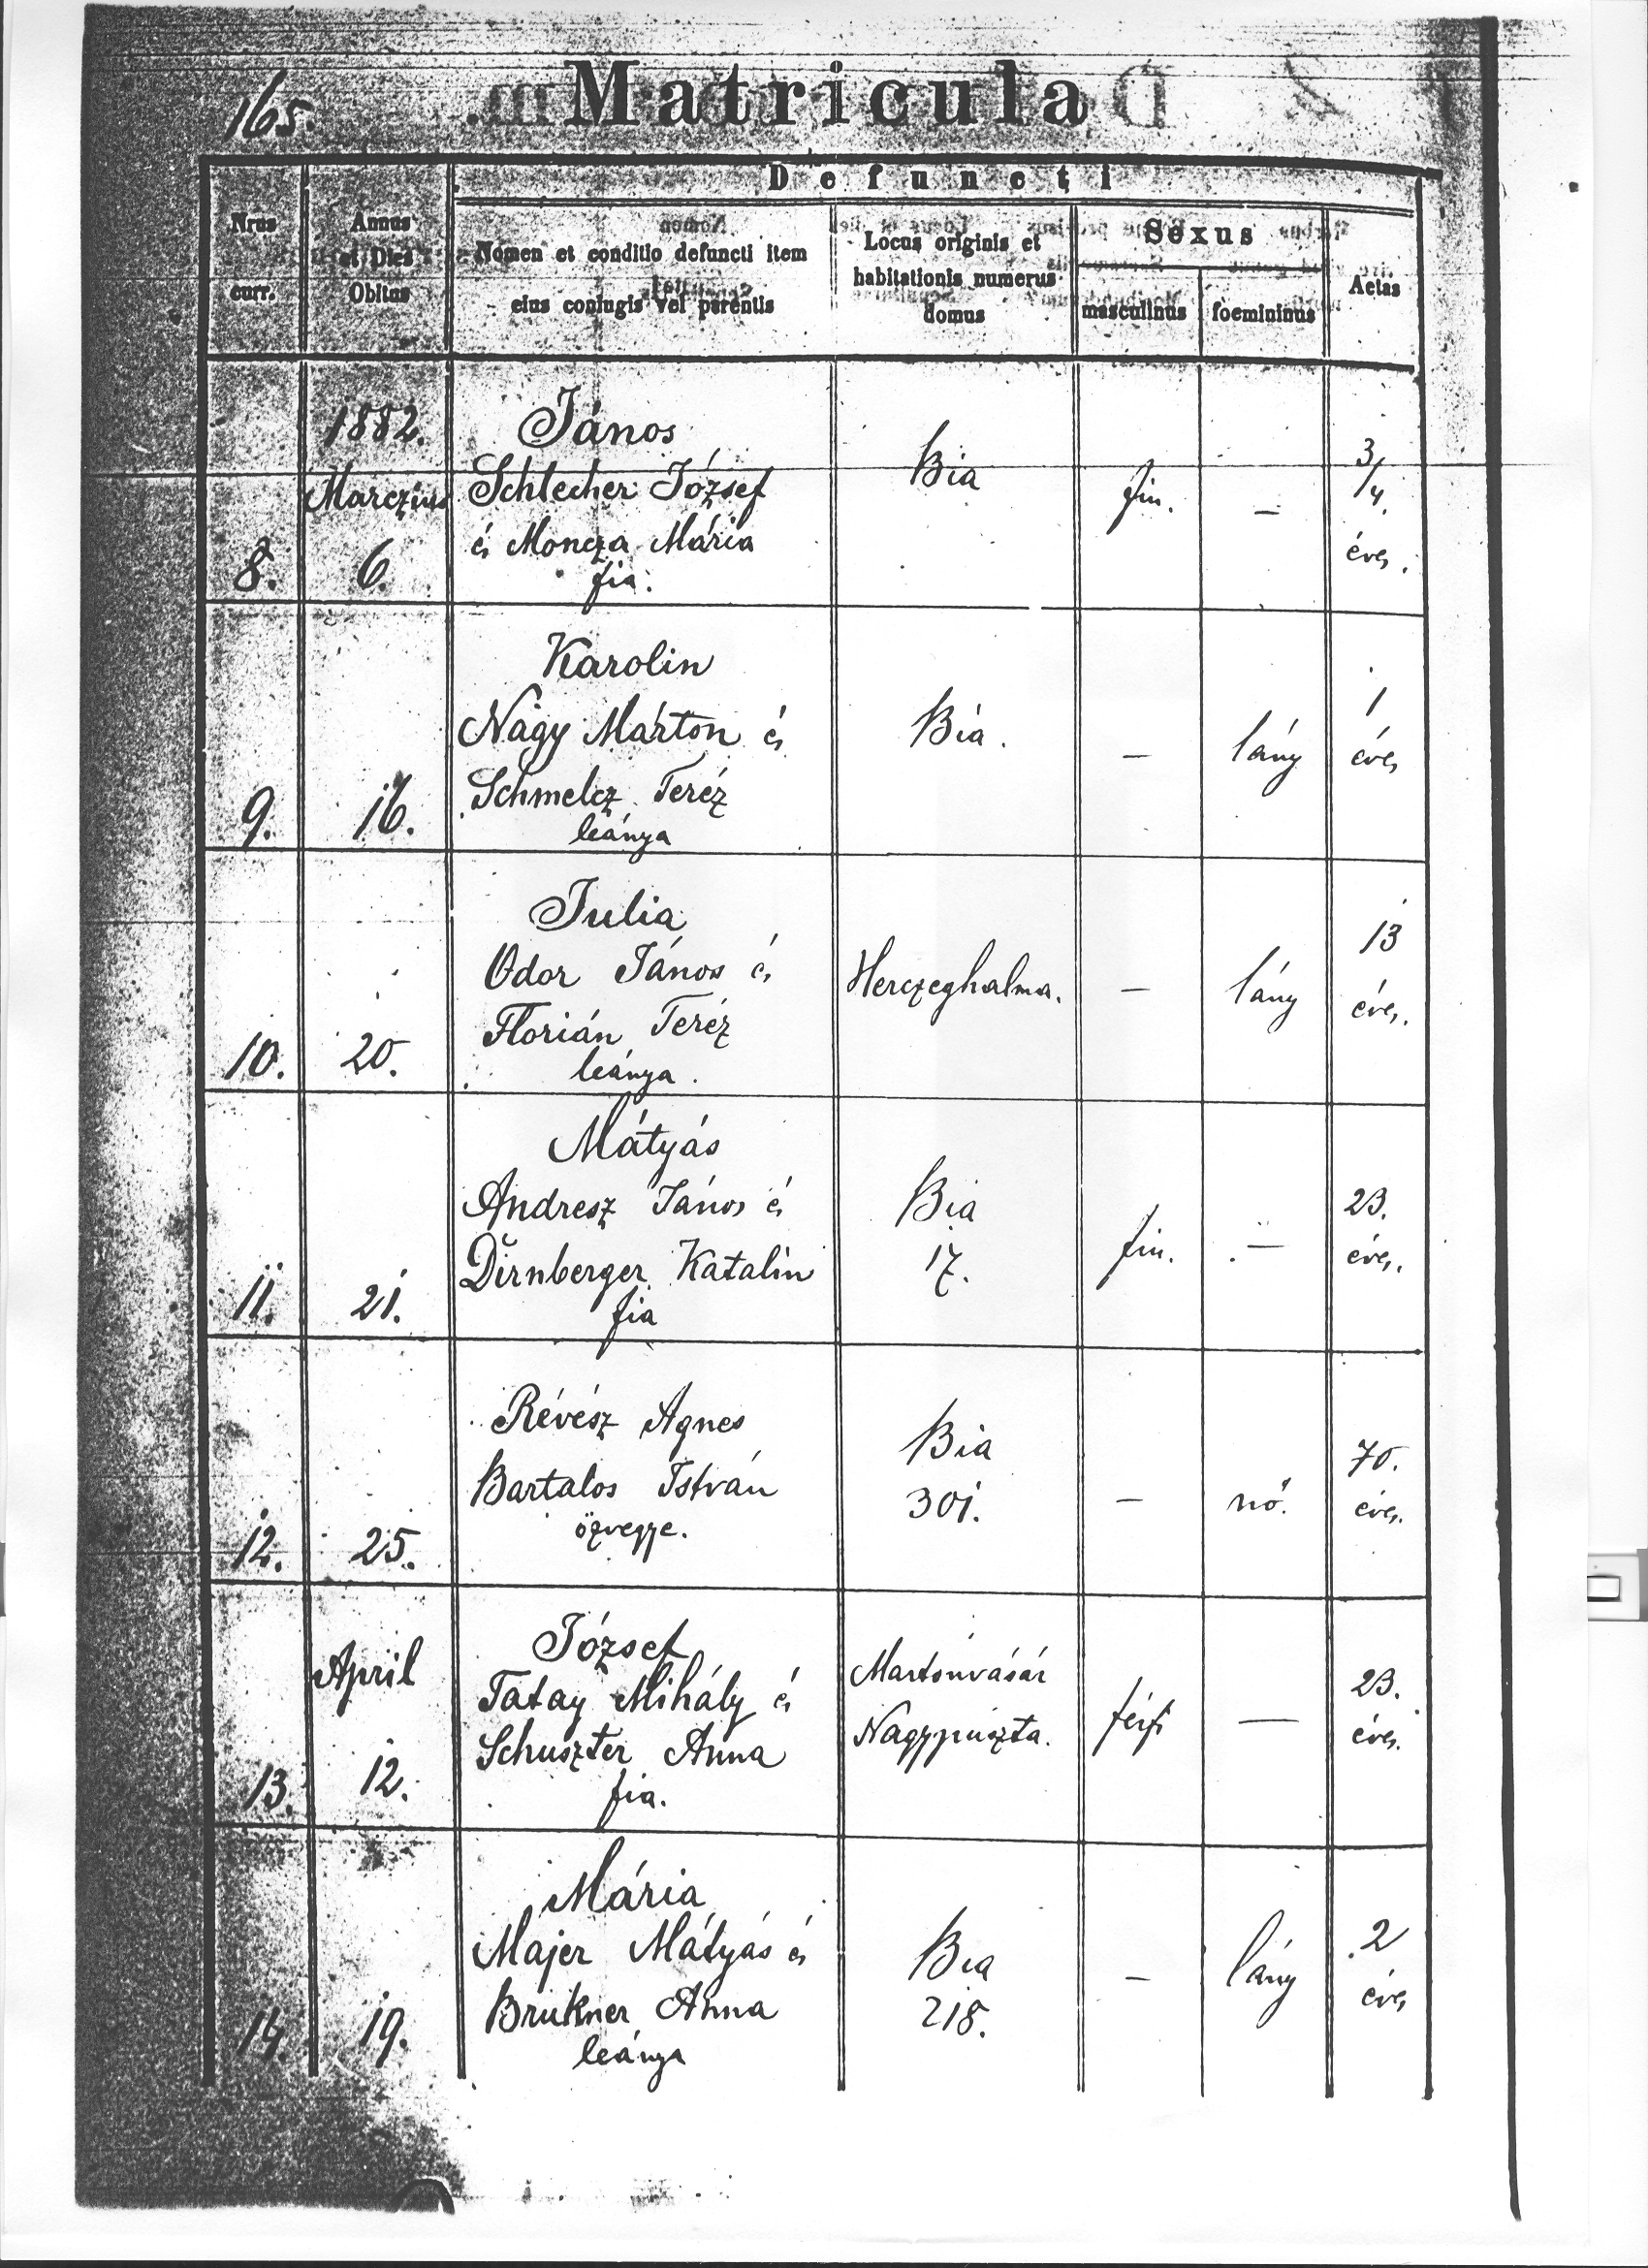 165.
Matricula
Defuncti
Nrus
curr.
Annus
et Dies
Obitus
Nomen et conditio defuncti item
eius coniugis vel parentis
Locus originis et
habitationis numerus
domus
Sexus
masculinus
foemininus
Aetas
8.
1882.
Marczius
6.
János
Schlecher József
és Moncza Mária
fia.
Bia
fiu.
—
3/4.
éves.
9.
16.
Karolin
Nagy Márton és
Schmelcz Teréz
leánya
Bia.
—
lány
1
éves
10.
20.
Julia
Odor János és
Florián Teréz
leánya.
Herczeghalma.
—
lány
13
éves.
11.
21.
Mátyás
Andresz János és
Dirnberger Katalin
fia
Bia
17.
fiu.
—
23.
éves.
12.
25.
Révész Agnes
Bartalos István
özvegye.
Bia
301.
—
nő.
70.
éves.
13.
April
12.
József
Tatay Mihály és
Schuszter Anna
fia.
Martonvásár
Nagypuszta.
férfi
—
23.
éves.
14.
19.
Mária
Majer Mátyás és
Brukner Anna
leánya
Bia
218.
—
lány
2
éves